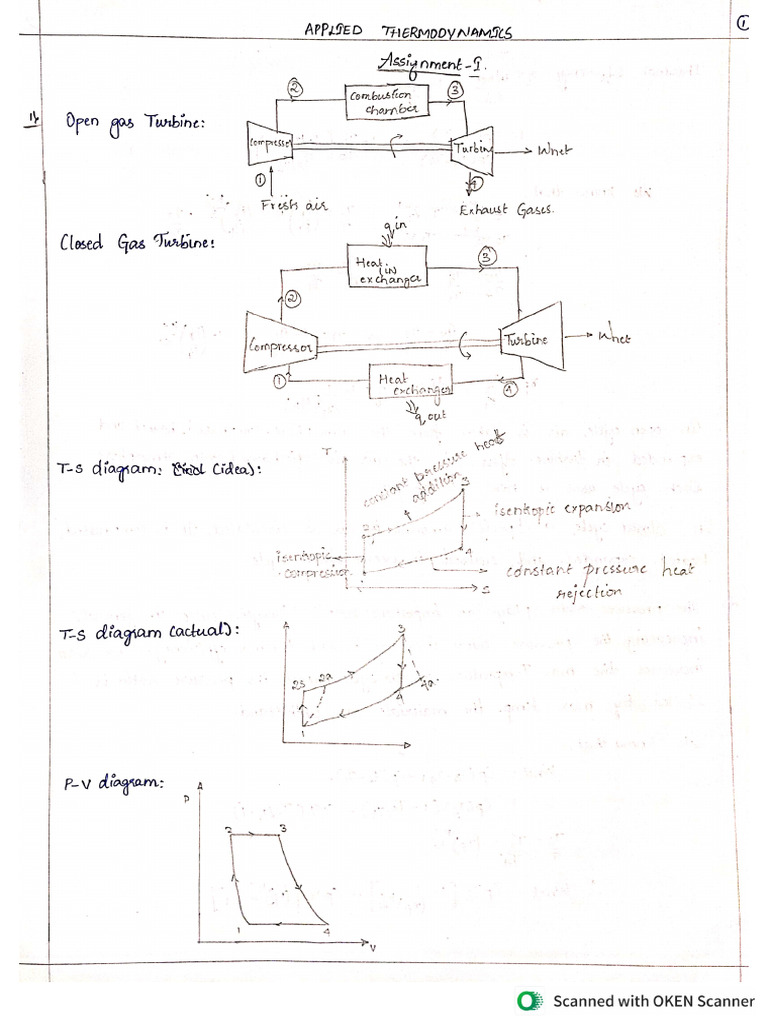 ①
APPLIED THERMODYNAMICS
Assignment-I.
1)
Open gas Turbine:
②
Combustion
chamber
③
Compressor
Turbin
Wnet
①
Fresh air
④
Exhaust Gases.
Closed Gas Turbine:
q in
Heat in
exchanger
③
②
Compressor
Turbine
Wnet
①
Heat
exchanger
④
q out
T-S diagram: (idea):
T
constant pressure heat
addition
3
isentopic expansion
2
isentopic
compression
4
constant pressure heat
rejection
S
T-S diagram (actual):
3
2s
2a
4
4a
1
P-V diagram:
P
2
3
1
4
V
Scanned with OKEN Scanner